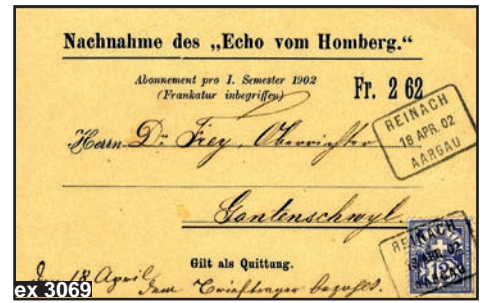 Nachnahme des „Echo vom Homberg.“
Abonnement pro I. Semester 1902
(Frankatur inbegriffen)
Fr. 2 62
REINACH
18 APR. 02
AARGAU
Herrn Dr. Frey, Oberrichter
Gontenschwyl.
REINACH
18 APR. 02
AARGAU
12
Gilt als Quittung.
Den 18. April dem Briefträger bezahlt.
ex 3069